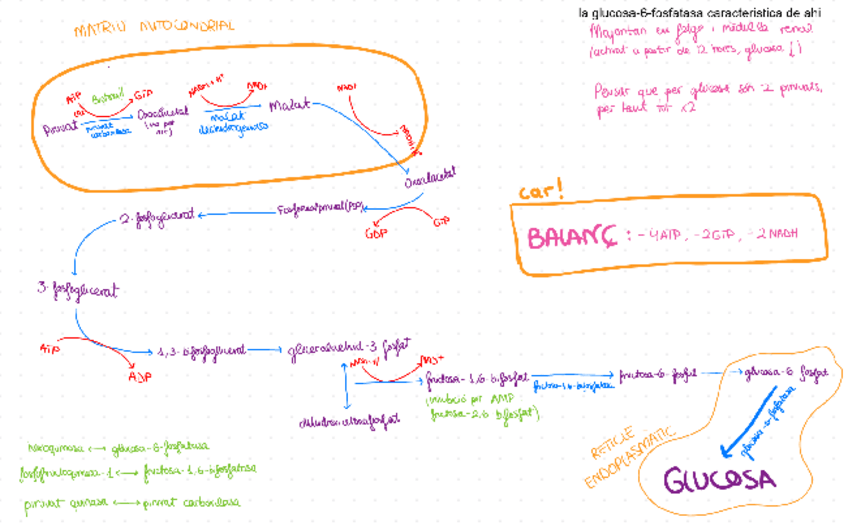 la glucosa-6-fosfatasa caracteristica de ahi
Majoritari en fetge i medul·la renal
(activat a partir de 12 hores, glucosa ↓)
Pensar que per glucosa són 2 piruvats,
per tant tot x2
MATRIU MITOCONDRIAL
ATP
Biotina
GTP
NADH+H+
NAD+
Piruvat
piruvat
carboxilasa
Oxalacetat
Malat
malat
deshidrogenasa
NAD+
NADH+H+
Oxalacetat
Fosfoenolpiruvat (PEP)
GDP
GTP
2-fosfoglicerat
3-fosfoglicerat
car!
BALANÇ : -4ATP, -2GTP, -2NADH
ATP
ADP
1,3-bifosfoglicerat
gliceraldehid-3 fosfat
NADH+H+
NAD+
dihidroxiacetona fosfat
fructosa-1,6-bifosfat
(inhibició per AMP
fructosa-2,6 bifosfat)
fructosa-1,6-bifosfatasa
fructosa-6-fosfat
glucosa-6 fosfat
glucosa-6-fosfatasa
RETICLE
ENDOPLASMATIC
GLUCOSA
hexoquinasa ↔ glucosa-6-fosfatasa
fosfofructoquinasa-1 ↔ fructosa-1,6-bifosfatasa
piruvat quinasa ↔ piruvat carboxilasa